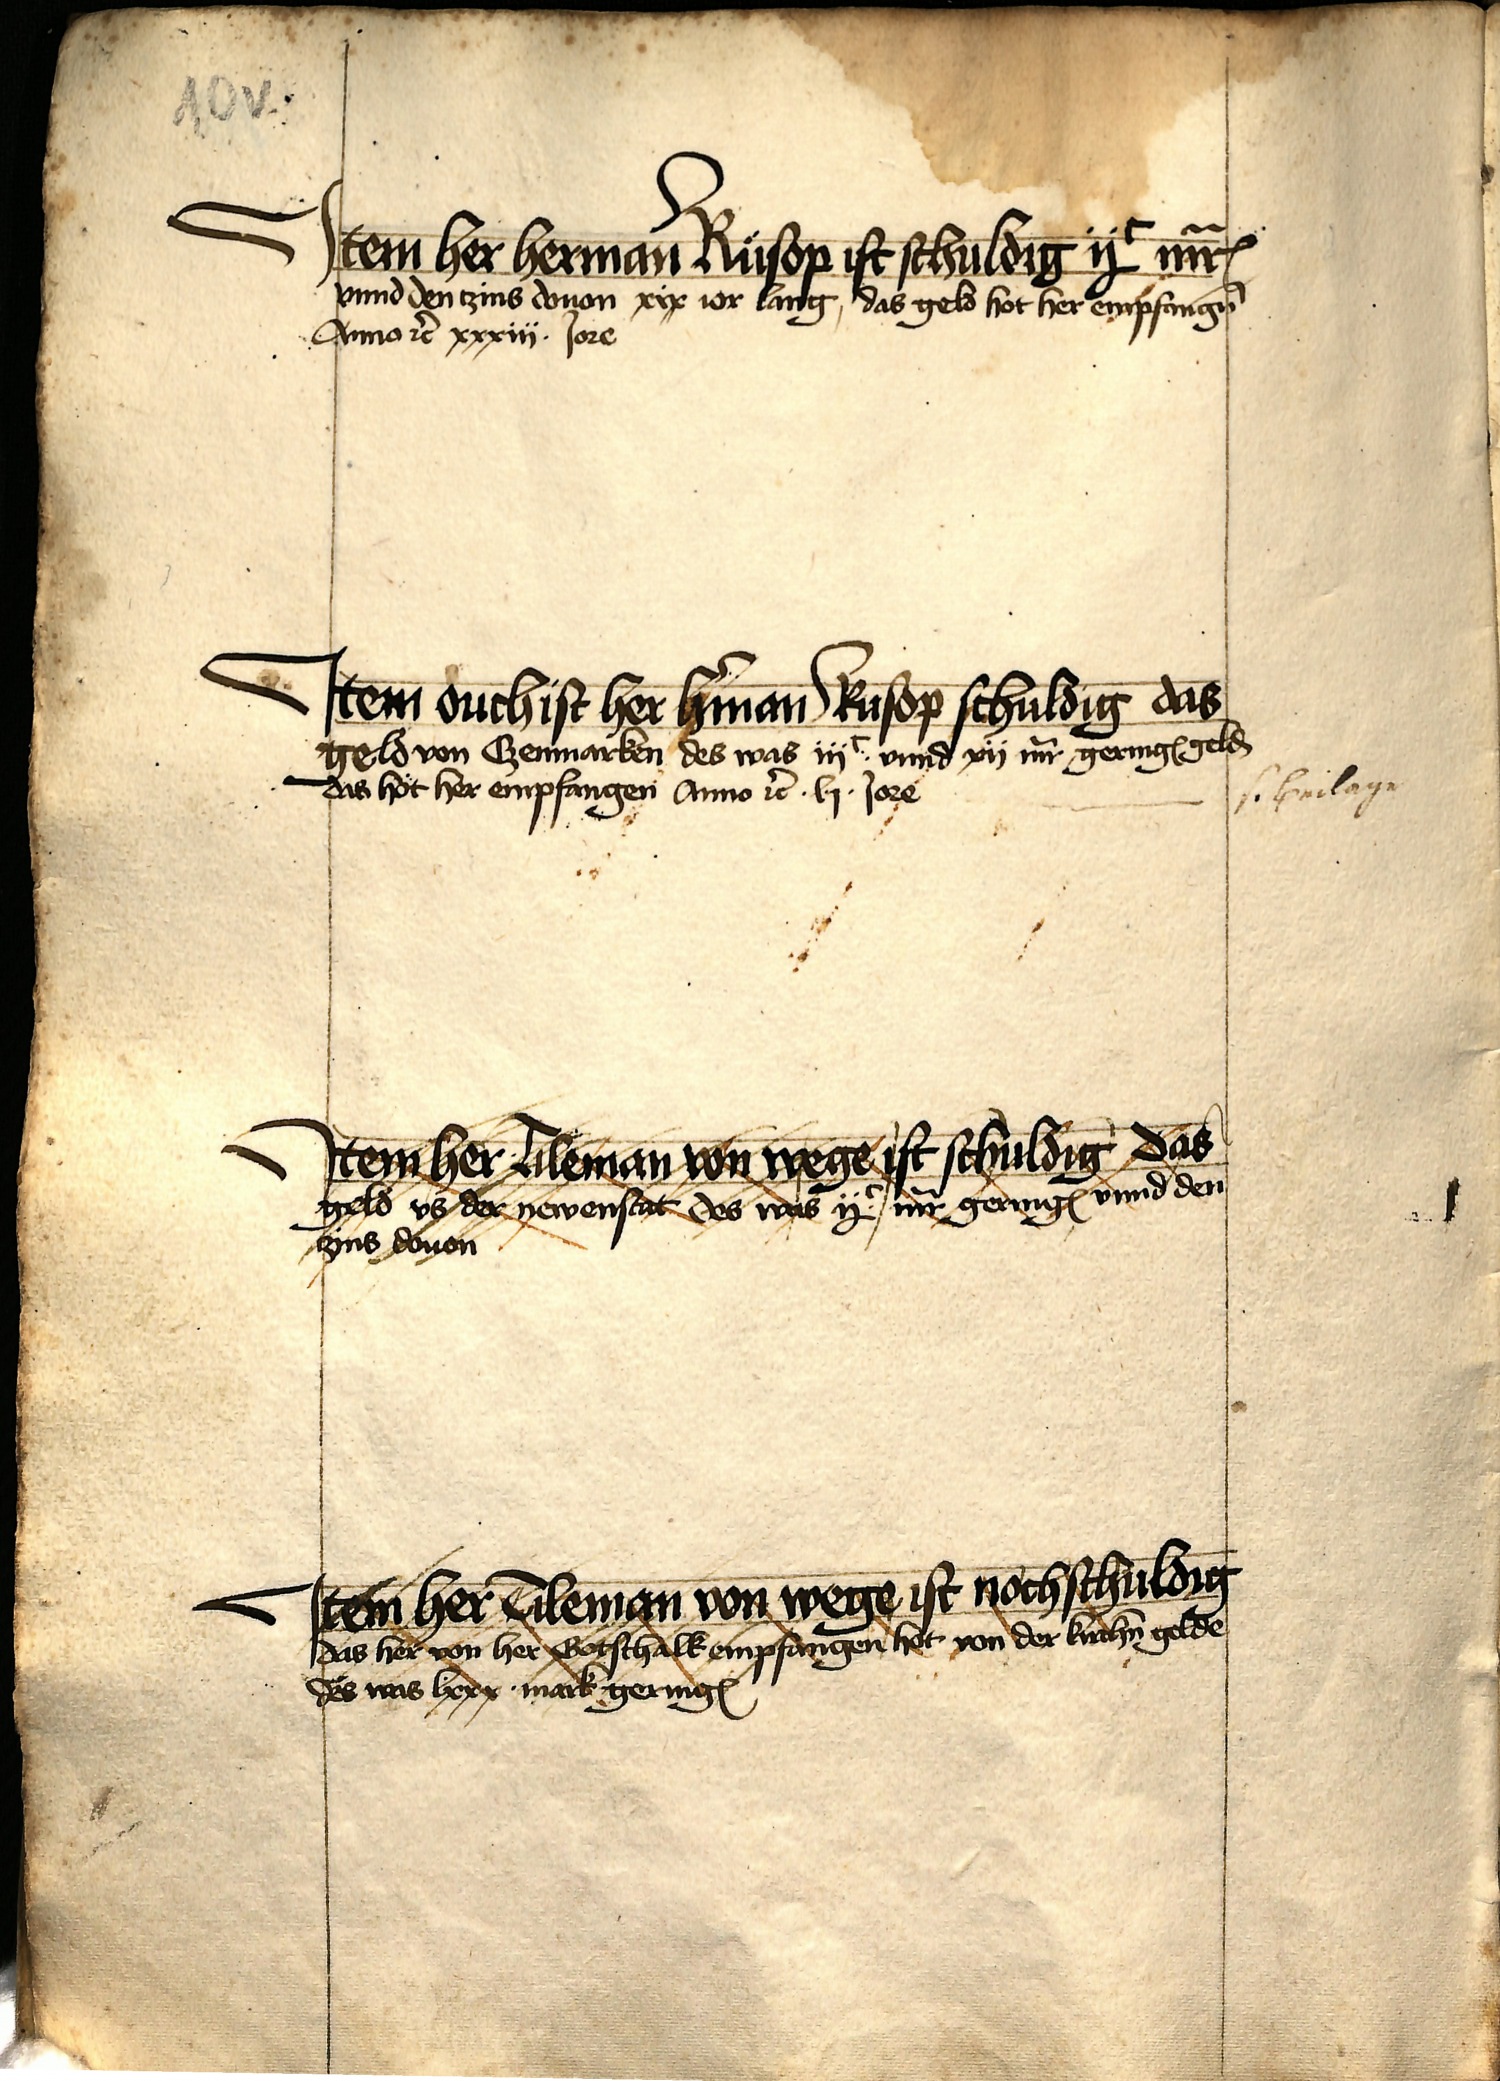 10v.
Item her herman Rüsop ist schuldig ijᶜ mr̃
vnnd den tzins douon xix ior lang, das geld hot her empfangñ
Anno rc̃ xxxiii · Jore
Item ouch ist her hˀman Rusop schuldig das
geld von Denmarken des was iijᶜ· vnnd xij mr̃ gering geld
das hot her empfangen Anno rc̃ · lj · Jore
s. Beilage
Item her Tileman von wege ist schuldig das
geld vs der newenstat des was ijᶜ· mr̃ gering vnnd den
tzins douon
Item her Tileman von wege ist noch schuldig
das her von her Gotschalk empfangen hot von der kirchñ gelde
des was lxxx · mark gering